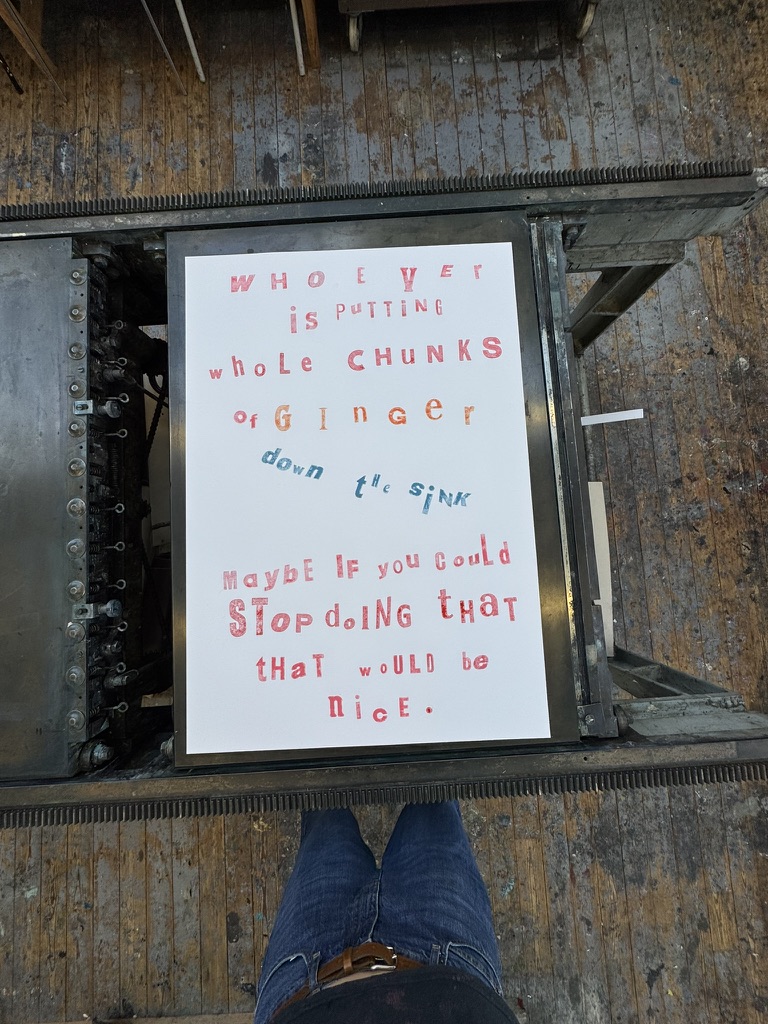 WHOEVEr
is PuTTING
whoLe CHUNKS
of GInGer
down the SiNK
MaybE IF you CouLd
STOP doING tHaT
tHaT woULD be
nicE.